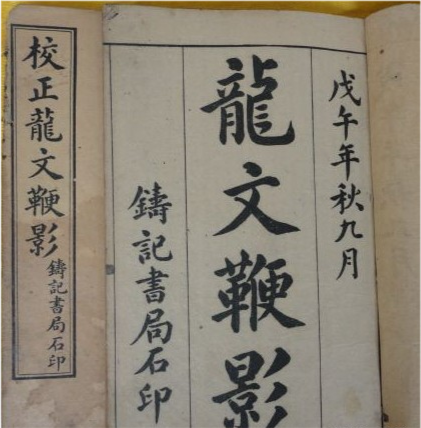 校正龍文鞭影
鑄記書局石印
戊午年秋九月
龍文鞭影
鑄記書局石印